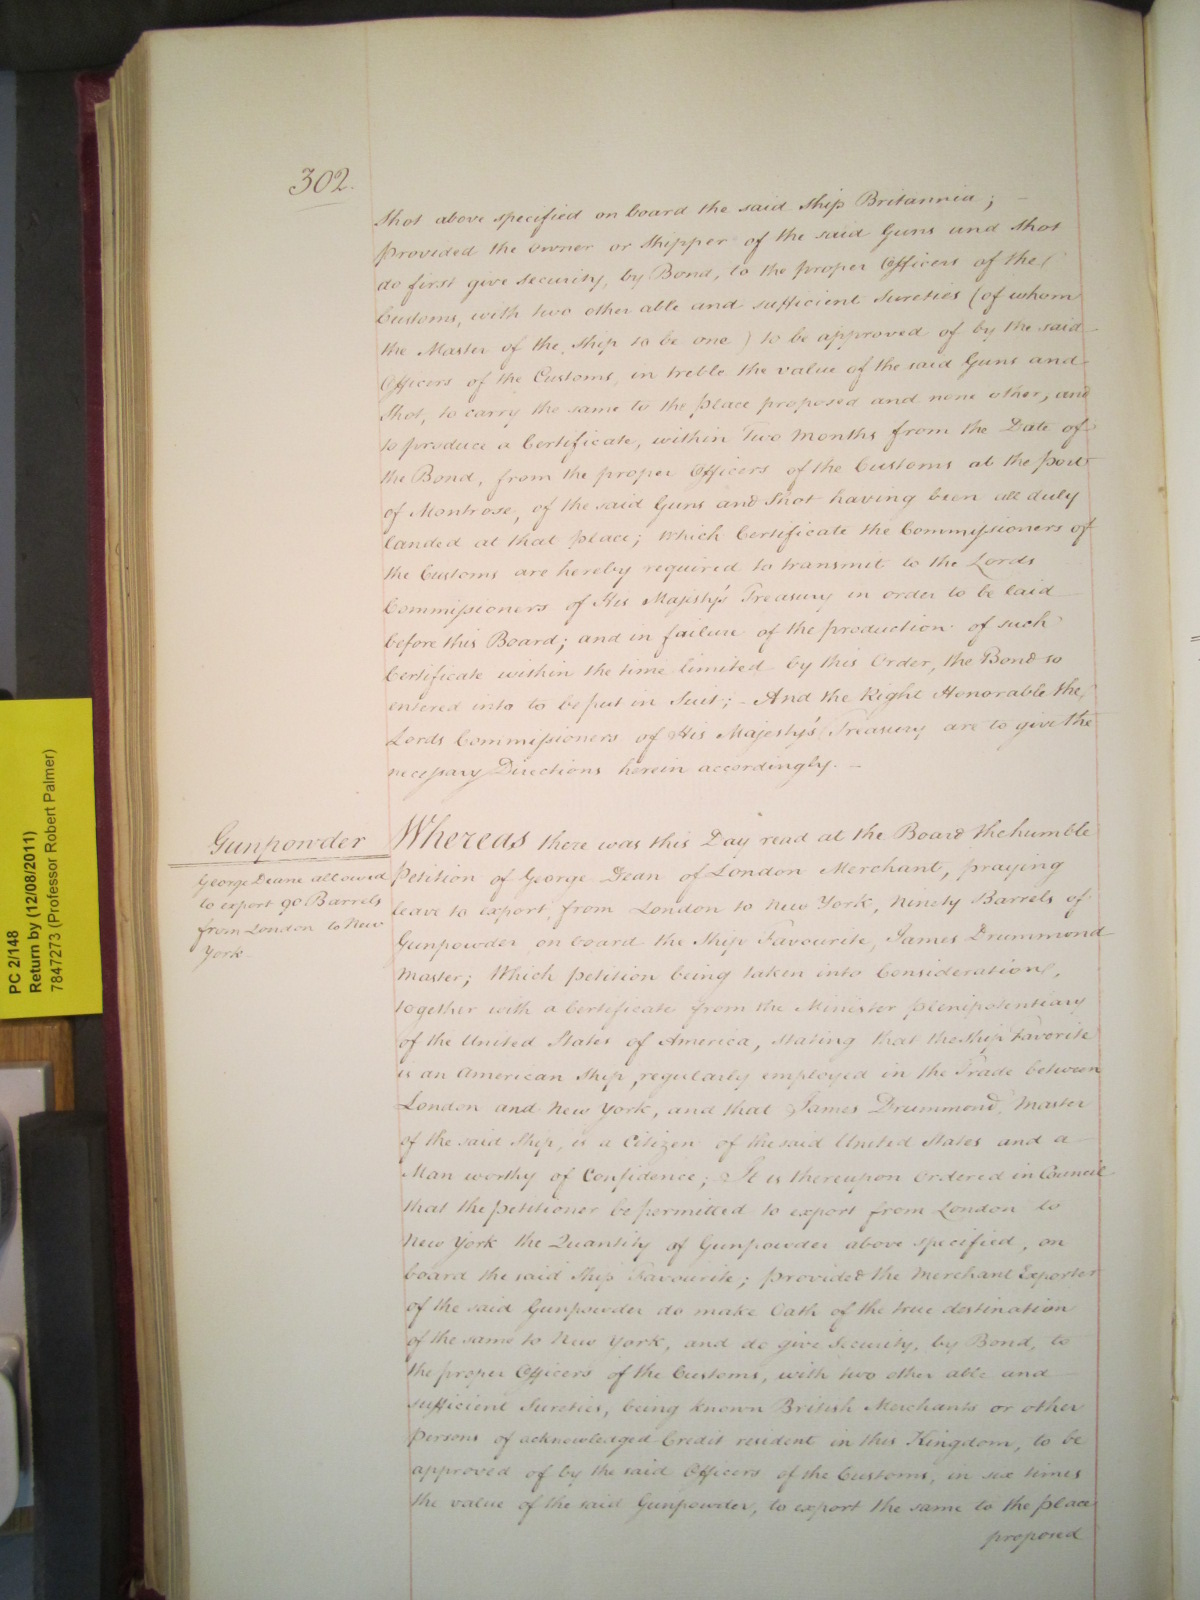 302.
Shot above specified on board the said Ship Britannia; –
Provided the owner or Shipper of the said Guns and Shot
do first give Security, by Bond, to the proper Officers of the
Customs, with two other able and sufficient Sureties (of whom
the Master of the Ship to be one) to be approved of by the said
Officers of the Customs, in treble the value of the said Guns and
Shot, to carry the same to the place proposed and none other, and
to produce a Certificate, within Two Months from the Date of
the Bond, from the proper Officers of the Customs at the port
of Montrose, of the said Guns and Shot having been all duly
landed at that place; Which Certificate the Commissioners of
the Customs are hereby required to transmit to the Lords
Commissioners of His Majesty's Treasury in order to be laid
before this Board; and in failure of the production of such
Certificate within the time limited by this Order, the Bond so
entered into to be put in Suit; – And the Right Honorable the
Lords Commissioners of His Majesty's Treasury are to give the
necessary Directions herein accordingly. –
Gunpowder
George Deane allowed
to export 90 Barrels
from London to New
York
Whereas there was this Day read at the Board the humble
Petition of George Dean of London Merchant, praying
leave to export, from London to New York, Ninety Barrels of
Gunpowder on board the Ship Favourite, James Drummond
Master; Which petition being taken into Consideration,
together with a Certificate from the Minister plenipotentiary
of the United States of America, stating that the Ship Favorite
is an American Ship, regularly employed in the Trade between
London and New York, and that James Drummond, Master
of the said Ship, is a Citizen of the said United States and a
Man worthy of Confidence; It is thereupon Ordered in Council
that the petitioner be permitted to export from London to
New York the Quantity of Gunpowder above specified, on
board the said Ship Favourite; provided the Merchant Exporter
of the said Gunpowder do make Oath of the true destination
of the same to New York, and do give Security, by Bond, to
the proper Officers of the Customs, with two other able and
sufficient Sureties, being known British Merchants or other
Persons of acknowledged Credit resident in this Kingdom, to be
approved of by the said Officers of the Customs, in six times
the value of the said Gunpowder, to export the same to the place
proposed
PC 2/148
Return by (12/08/2011)
7847273 (Professor Robert Palmer)